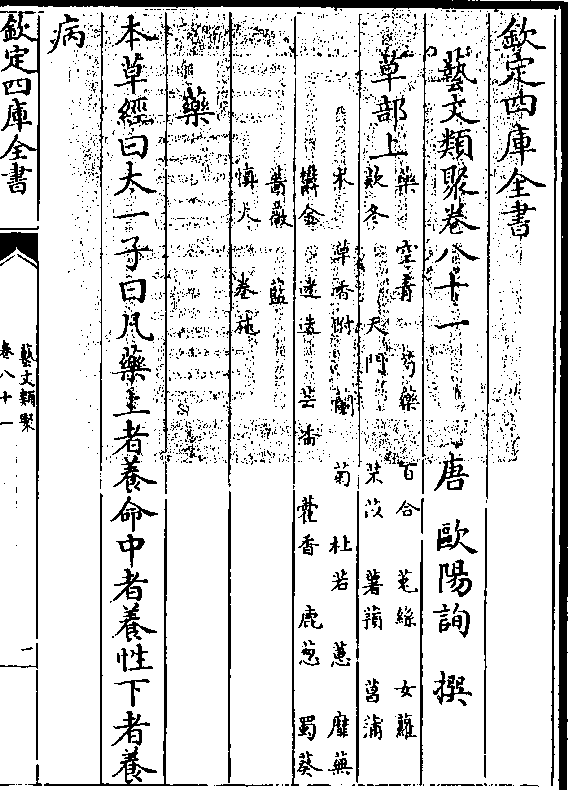 欽定四庫全書
藝文類聚卷八十一
唐 歐陽詢 撰
草部上
藥 空青 芍藥 百合 菟絲 女蘿
款冬 天門 芣苡 薯蕷 菖蒲
术 草香附 蘭 菊 杜若 蕙 蘼蕪
鬱金 迷迭 芸香 藿香 鹿葱 蜀葵
薔薇 藍
慎火 卷施
藥
本草經曰太一子曰凡藥上者養命中者養性下者養
病
欽定四庫全書
藝文類聚
卷八十一
二